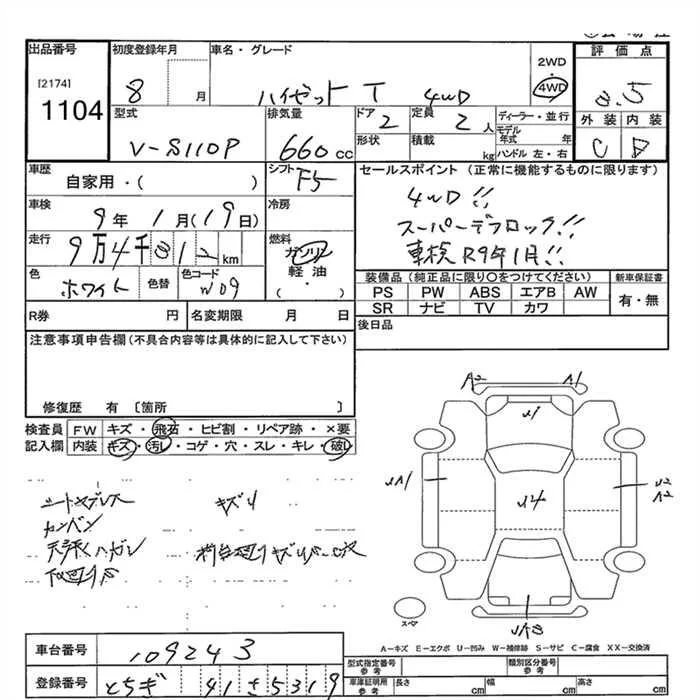 出品番号 初度登録年月 車名・グレード 2WD 評価点
[2174] 8 月 ハイゼット T 4WD 4WD 3.5
1104 型式 排気量 ドア 2 定員 2 人 ディーラー・並行 外装 内装
V-S110P 660 cc 形状 積載 kg モデル年式 年 C D
ハンドル 左・右
車歴 シフト F5 セールスポイント (正常に機能するものに限ります)
自家用・( ) 4WD!!
車検 9 年 1 月 (19 日) 冷房 スーパーデフロック!!
走行 9万4千312 km 燃料 ガソリン 車検R9年1月!!
色 ホワイト 色替 色コード W09 軽油 ( )
装備品 (純正品に限り〇をつけてください) 新車保証書
PS PW ABS エアB AW 有・無
SR ナビ TV カワ
R券 円 名変期限 月 日 後日品
注意事項申告欄 (不具合内容等は具体的に記入して下さい)
修復歴 有 〔箇所 〕
検査員 FW キズ・飛石・ヒビ割・リペア跡・×要
記入欄 内装 キズ・汚レ・コゲ・穴・スレ・キレ・破レ
A2 A1
カンバン
スペア
A-キズ E-エクボ U-凹み W-補修跡 S-サビ C-腐食 XX-交換済
車台番号 109243
登録番号 とちぎ 41 さ 5319
型式指定番号 参考 類別区分番号 参考
車庫証明用 参考 長さ cm 幅 cm 高さ cm